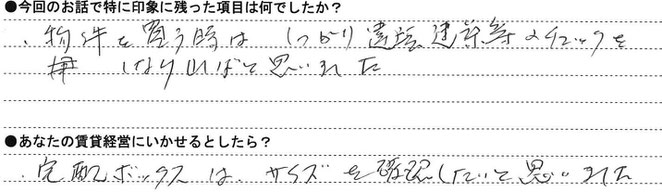 ●今回のお話で特に印象に残った項目は何でしたか？
・物件を買う時は しっかり違法建築等のチェックを
しなければと思いました
●あなたの賃貸経営にいかせるとしたら？
・宅配ボックスは、サイズを確認したいと思いました